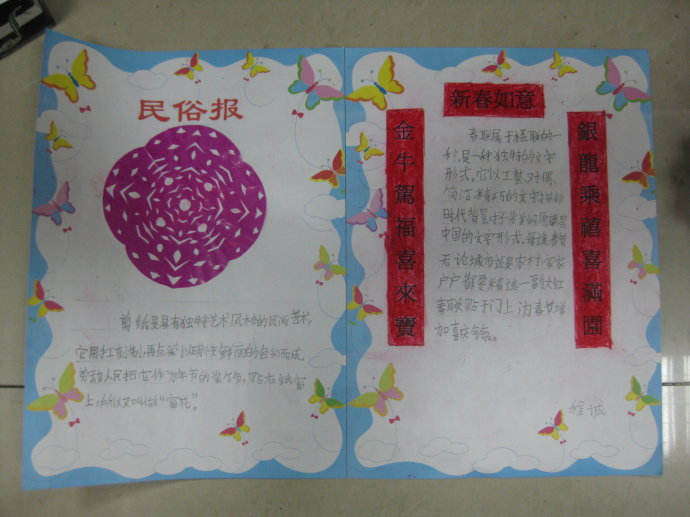 民俗报
剪纸是具有独特艺术风格的民间艺术,
它用手工刻制,再点染以明快鲜丽的色彩而成。
劳动人民把它作为年节的装饰,贴在纸窗
上,所以又叫做“窗花”。
新春如意
金牛駕福喜來寶
銀龍乘禧喜滿園
春联属于楹联的一
种,是一种独特的文字
形式。它以工整、对偶、
简洁、精巧的文字描绘
时代背景,抒发美好愿望,是
中国的文字形式。每逢春节,
无论城市还是农村,家家
户户都要精选一副大红
春联贴于门上,为春节增
加喜庆气氛。
程诚